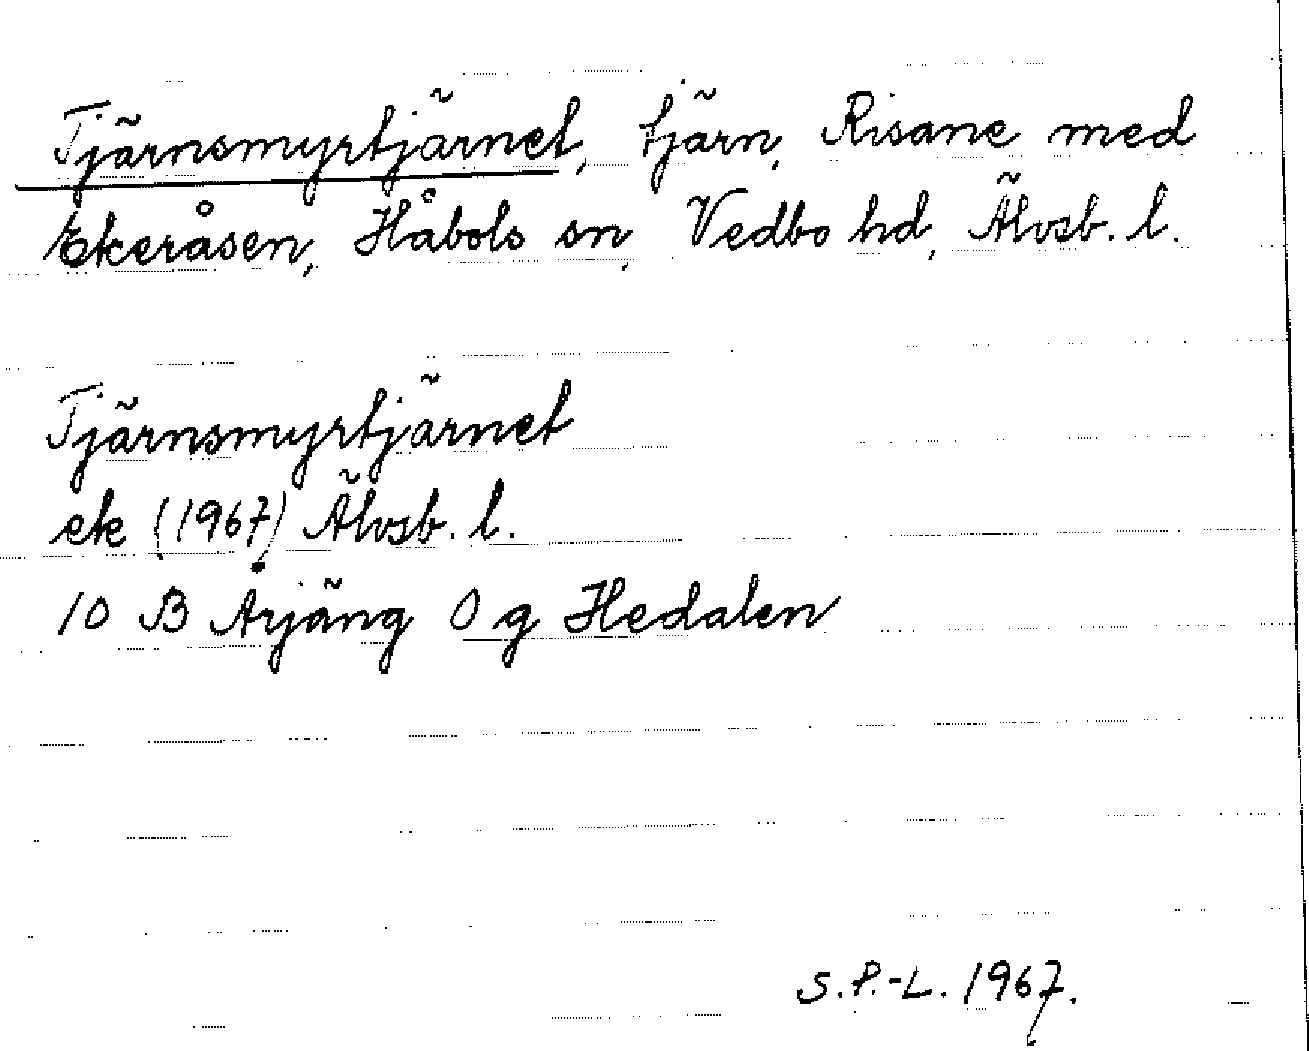 Tjärnsmyrtjärnet, tjärn, Risane med
Ekeråsen, Håbols sn, Vedbo hd, Älvsb. l.
Tjärnsmyrtjärnet
ek (1967) Älvsb. l.
10 B Årjäng 0 g Hedalen
S.P.-L. 1967.